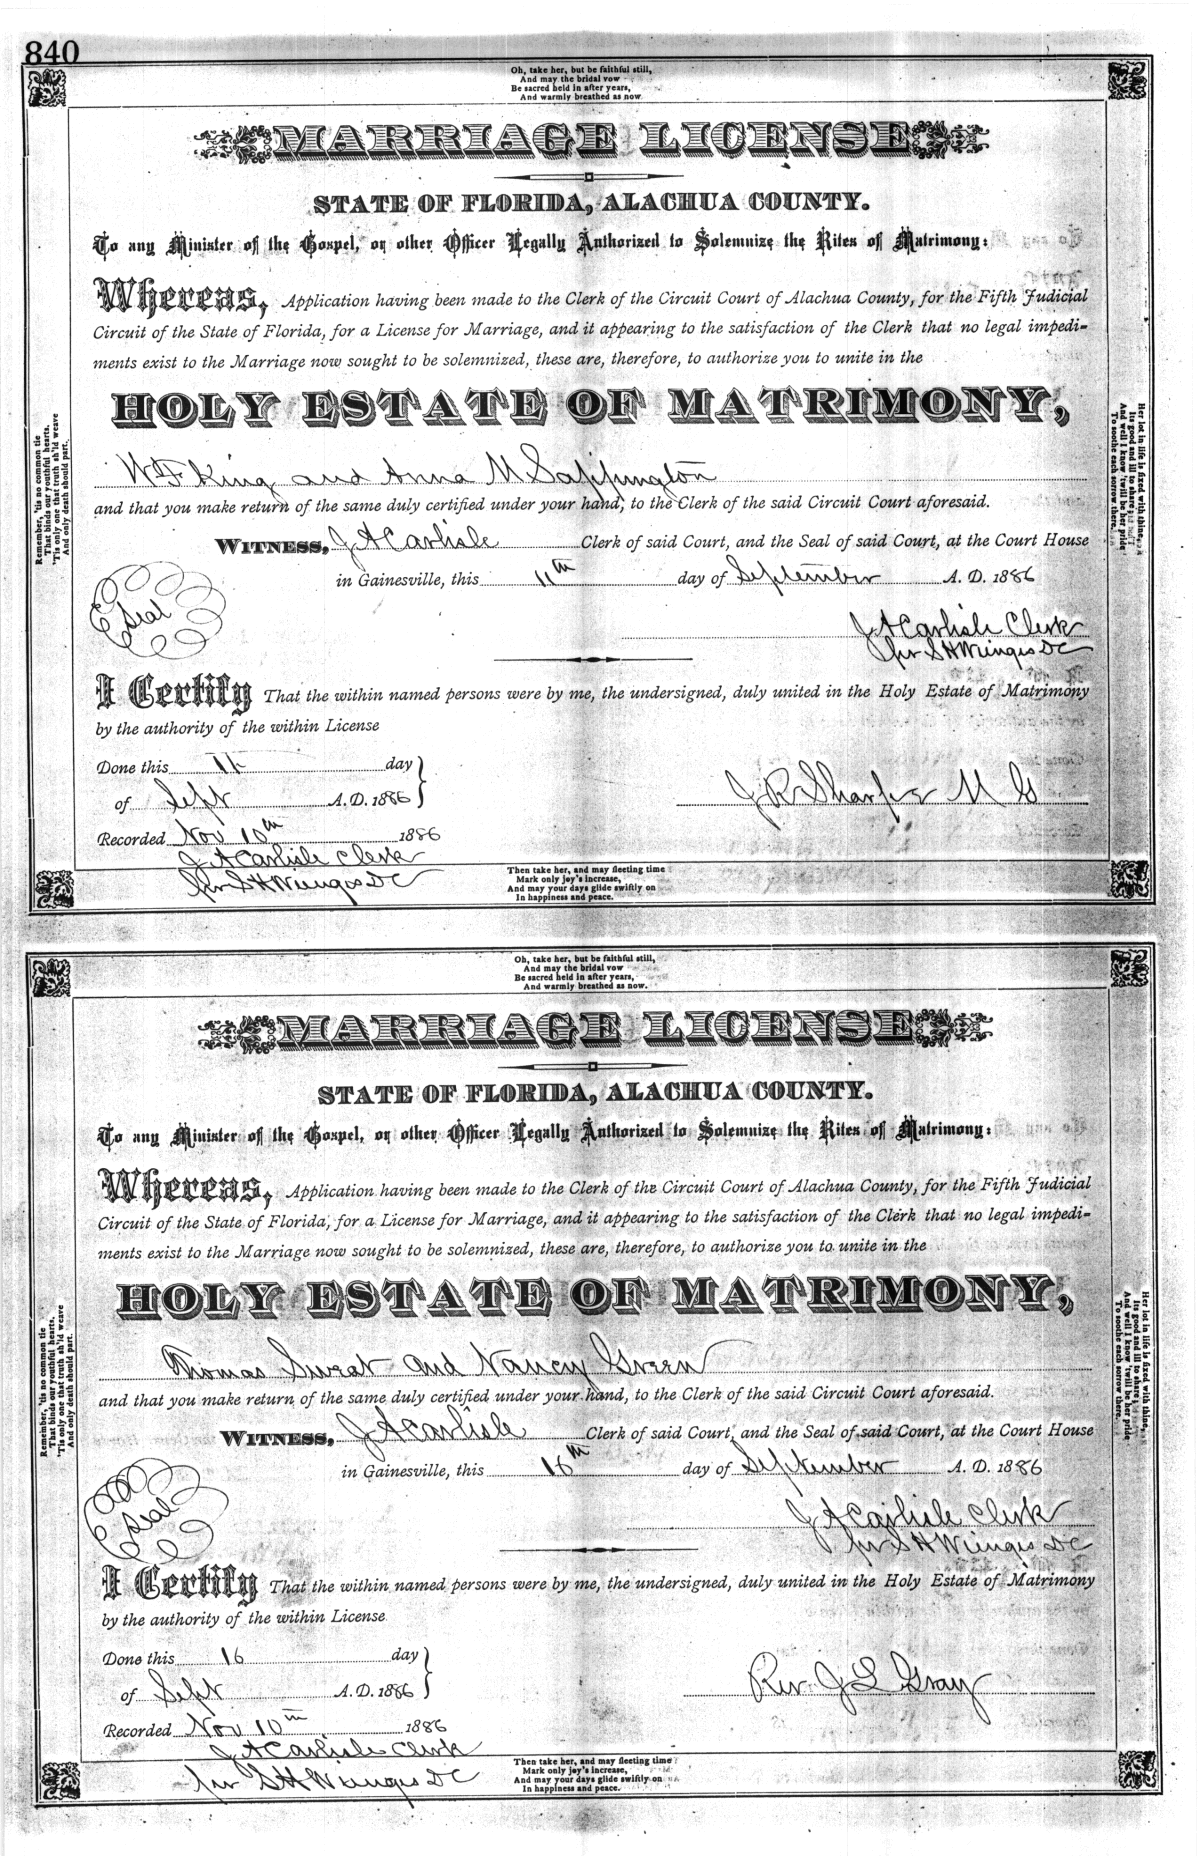 840
Oh, take her, but be faithful still,
And may the bridal vow
Be sacred held in after years,
And warmly breathed as now
MARRIAGE LICENSE
STATE OF FLORIDA, ALACHUA COUNTY.
To any Minister of the Gospel, or other Officer Legally Authorized to Solemnize the Rites of Matrimony:
Whereas, Application having been made to the Clerk of the Circuit Court of Alachua County, for the Fifth Judicial
Circuit of the State of Florida, for a License for Marriage, and it appearing to the satisfaction of the Clerk that no legal impedi-
ments exist to the Marriage now sought to be solemnized, these are, therefore, to authorize you to unite in the
HOLY ESTATE OF MATRIMONY,
Wm F King and Anna M Sappington
and that you make return of the same duly certified under your hand, to the Clerk of the said Circuit Court aforesaid.
WITNESS, J A Carlisle Clerk of said Court, and the Seal of said Court, at the Court House
in Gainesville, this 11th day of September A. D. 1886
Seal
J A Carlisle Clerk
per S H Wienges DC
I Certify That the within named persons were by me, the undersigned, duly united in the Holy Estate of Matrimony
by the authority of the within License
Done this 11 day
of Sept A.D. 1886
J R Sharpe M G
Recorded Nov 10th 1886
J A Carlisle Clerk
per S H Wienges DC
Then take her, and may fleeting time
Mark only joy's increase,
And may your days glide swiftly on
In happiness and peace.
Remember, 'tis no common tie
That binds our youthful hearts,
'Tis only one that truth sh'ld weave
And only death should part.
Her lot in life is fixed with thine,
Its good and ill to share
And well I know 'twill be her pride
To soothe each sorrow there.
Oh, take her, but be faithful still,
And may the bridal vow
Be sacred held in after years,
And warmly breathed as now.
MARRIAGE LICENSE
STATE OF FLORIDA, ALACHUA COUNTY.
To any Minister of the Gospel, or other Officer Legally Authorized to Solemnize the Rites of Matrimony:
Whereas, Application having been made to the Clerk of the Circuit Court of Alachua County, for the Fifth Judicial
Circuit of the State of Florida, for a License for Marriage, and it appearing to the satisfaction of the Clerk that no legal impedi-
ments exist to the Marriage now sought to be solemnized, these are, therefore, to authorize you to unite in the
HOLY ESTATE OF MATRIMONY,
Thomas Sweat and Nancy Green
and that you make return of the same duly certified under your hand, to the Clerk of the said Circuit Court aforesaid.
WITNESS, J A Carlisle Clerk of said Court, and the Seal of said Court, at the Court House
in Gainesville, this 16th day of September A. D. 1886
Seal
J A Carlisle Clerk
per S H Wienges DC
I Certify That the within named persons were by me, the undersigned, duly united in the Holy Estate of Matrimony
by the authority of the within License
Done this 16 day
of Sept A.D. 1886
Rev. J L Gray
Recorded Nov 10th 1886
J A Carlisle Clerk
per S H Wienges DC
Then take her, and may fleeting time
Mark only joy's increase,
And may your days glide swiftly on
In happiness and peace.
Remember, 'tis no common tie
That binds our youthful hearts,
'Tis only one that truth sh'ld weave
And only death should part.
Her lot in life is fixed with thine,
Its good and ill to share
And well I know 'twill be her pride
To soothe each sorrow there.